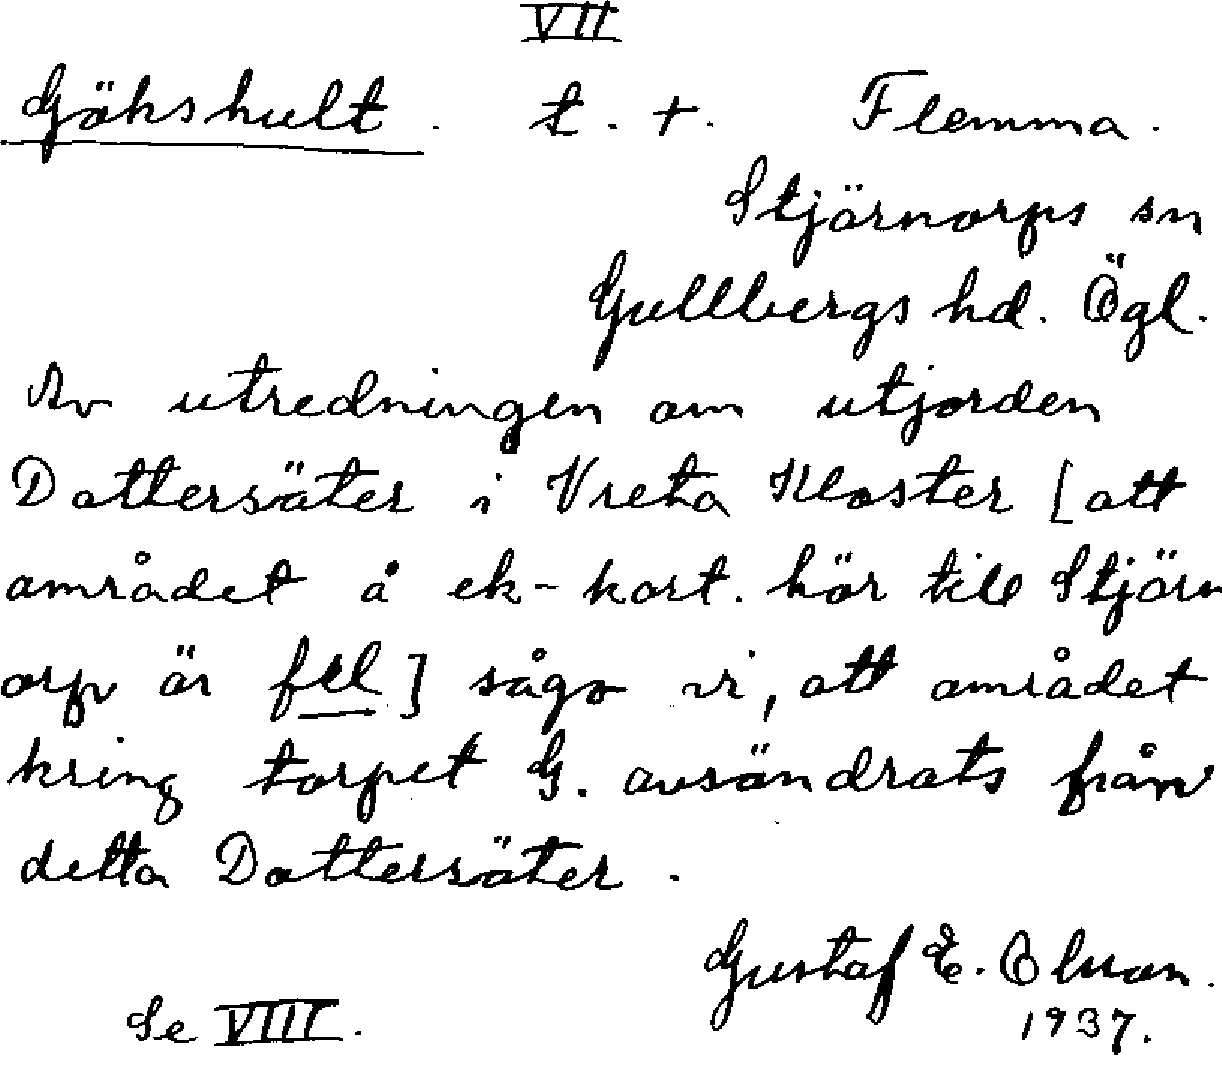 VII
Gökshult. t. +. Flemma.
Stjärnorps sn
Gullbergs hd. Ögl.
Av utredningen om utjorden
Dottersäter i Vreta Kloster [att
området å ek-kart. hör till Stjärn
orp är fel] sågo vi, att området
kring torpet G. avsöndrats från
detta Dottersäter.
Gustaf E. Olsson.
1937.
Se VIII.